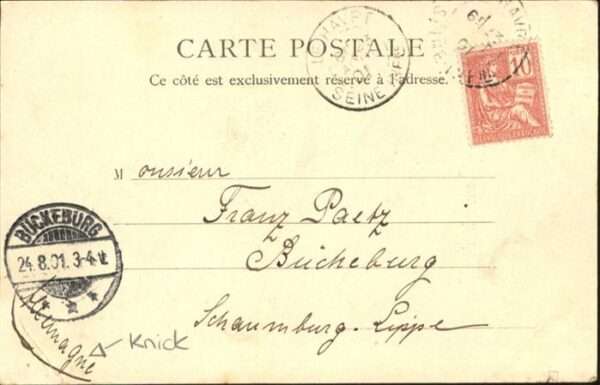 CARTE POSTALE
Ce côté est exclusivement réservé à l'adresse.
SEINE
10
Monsieur
Franz Paetz
Bückeburg
Schaumburg-Lippe
BÜCKEBURG
24.8.01.3-4N
Allemagne
Knick